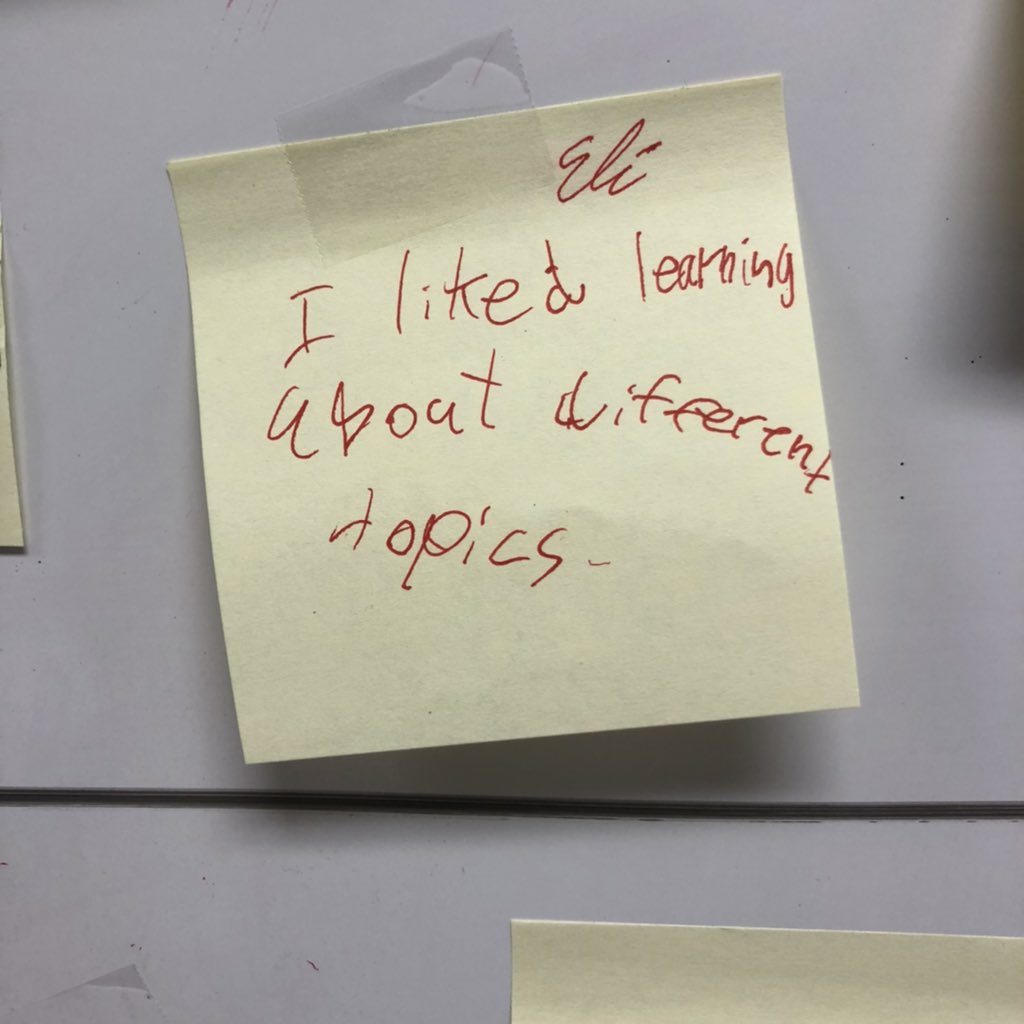 Eli
I liked learning
about different
topics.